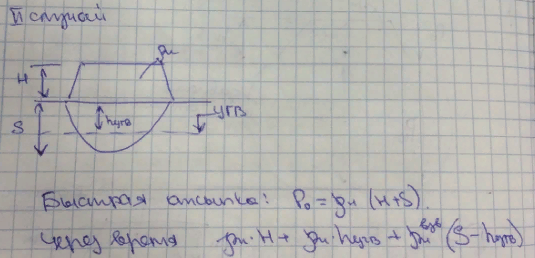 II случай
γн
H
hугв
УГВ
S
Быстрая отсыпка: P₀ = γн (H+S)
Через время γн·H + γн·hугв + γн^взв (S − hугв)